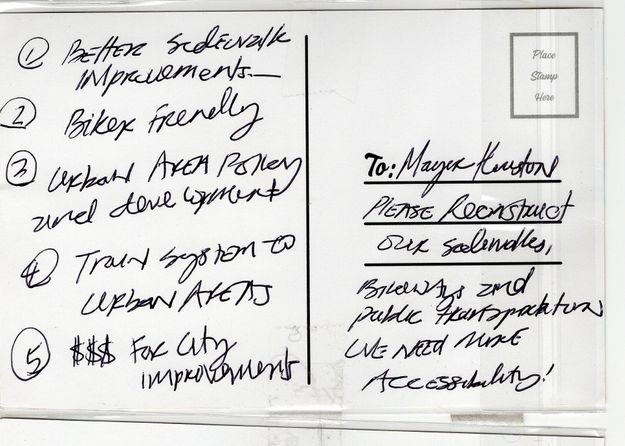 ① Better sidewalk
improvements—
② Biker Friendly
③ Urban Area Policy
and development
④ Train System to
Urban Areas
⑤ $$$ For City
improvement
Place
Stamp
Here
To: Mayor Houston
Please Reconstruct
our sidewalks,
Bikeways and
public transportation
We need more
Accessibility!